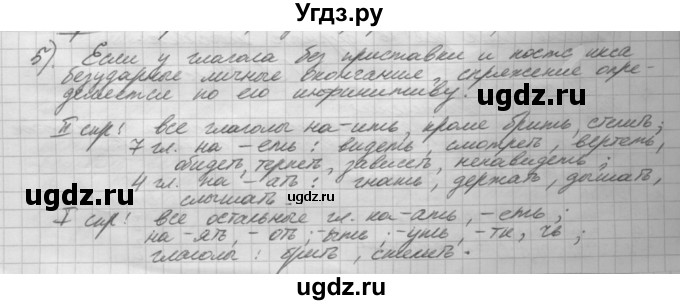 Угдз.ру
5) Если у глагола без приставки и постфикса
безударное личные окончание, спряжение опре-
деляется по его инфинитиву.
II спр: все глаголы на -ить, кроме брить, стелить;
7 гл. на -еть: видеть, смотреть, вертеть,
обидеть, терпеть, зависеть, ненавидеть;
4 гл. на -ать: гнать, держать, дышать,
слышать.
I спр: все остальные гл. на -ать, -еть;
на -ять, -оть, -ыть, -уть, -ти, чь;
глаголы: брить, стелить.
угдз.ру
угдз.ру
угдз.ру
угдз.ру
угдз.ру
угдз.ру
угдз.ру